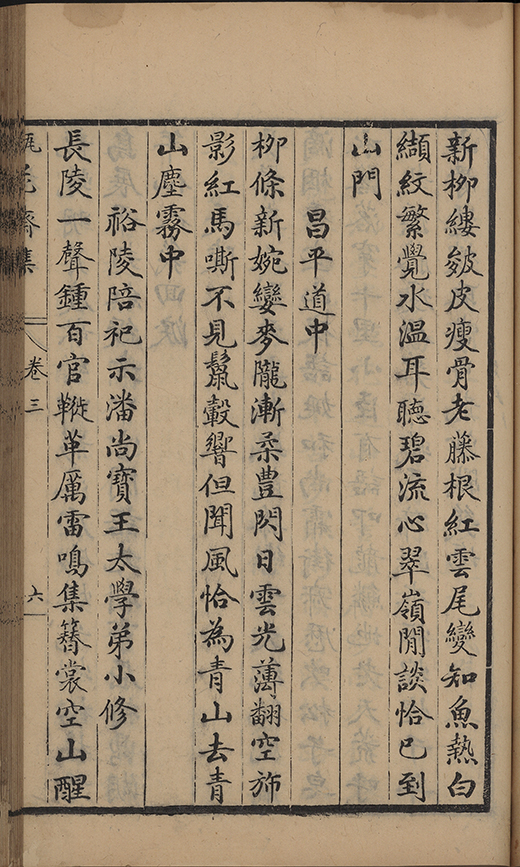 新柳縷皴皮瘦骨老藤根紅雲尾變知魚熱白
纈紋繁覺水溫耳聽碧流心翠嶺閒談恰已到
山門
昌平道中
柳條新婉孌麥隴漸柔豊閃日雲光薄翻空斾
影紅馬嘶不見鬣轂響但聞風恰為青山去青
山塵霧中
裕陵陪祀示潘尚寶王太學弟小修
長陵一聲鍾百官鞾革厲雷鳴集簪裳空山醒
瓶花齋集
卷三
六